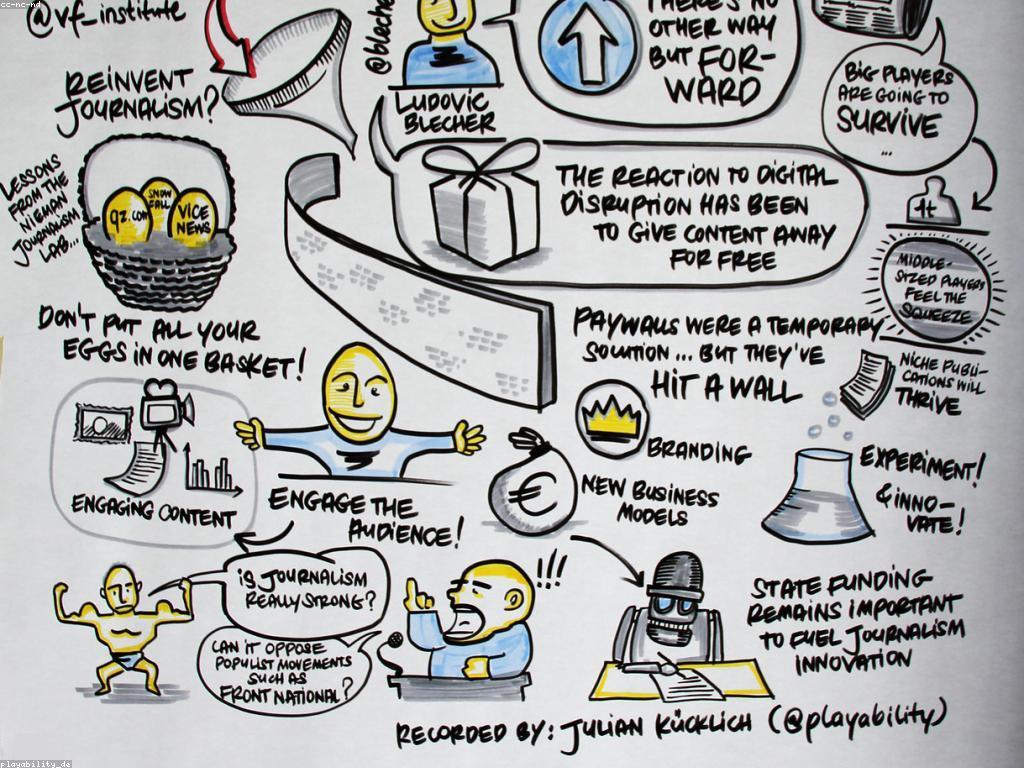 cc-nc-nd
@vf_institute
REINVENT
JOURNALISM?
LESSONS
FROM THE
NIEMAN
JOURNALISM
LAB...
qz.com
SNOW
FALL
VICE
NEWS
DON'T PUT ALL YOUR
EGGS IN ONE BASKET!
@bleche
LUDOVIC
BLECHER
THERE'S NO
OTHER WAY
BUT FOR-
WARD
BIG PLAYERS
ARE GOING TO
SURVIVE
...
THE REACTION TO DIGITAL
DISRUPTION HAS BEEN
TO GIVE CONTENT AWAY
FOR FREE
1t
MIDDLE-
SIZED PLAYERS
FEEL THE
SQUEEZE
PAYWALLS WERE A TEMPORARY
SOLUTION... BUT THEY'VE
HIT A WALL
NICHE PUBLI-
CATIONS WILL
THRIVE
BRANDING
€
NEW BUSINESS
MODELS
EXPERIMENT!
& INNO-
VATE!
ENGAGING CONTENT
ENGAGE THE
AUDIENCE!
IS JOURNALISM
REALLY STRONG?
CAN IT OPPOSE
POPULIST MOVEMENTS
SUCH AS
FRONT NATIONAL?
!!!
STATE FUNDING
REMAINS IMPORTANT
TO FUEL JOURNALISM
INNOVATION
RECORDED BY: JULIAN KÜCKLICH (@playability)
playability_de